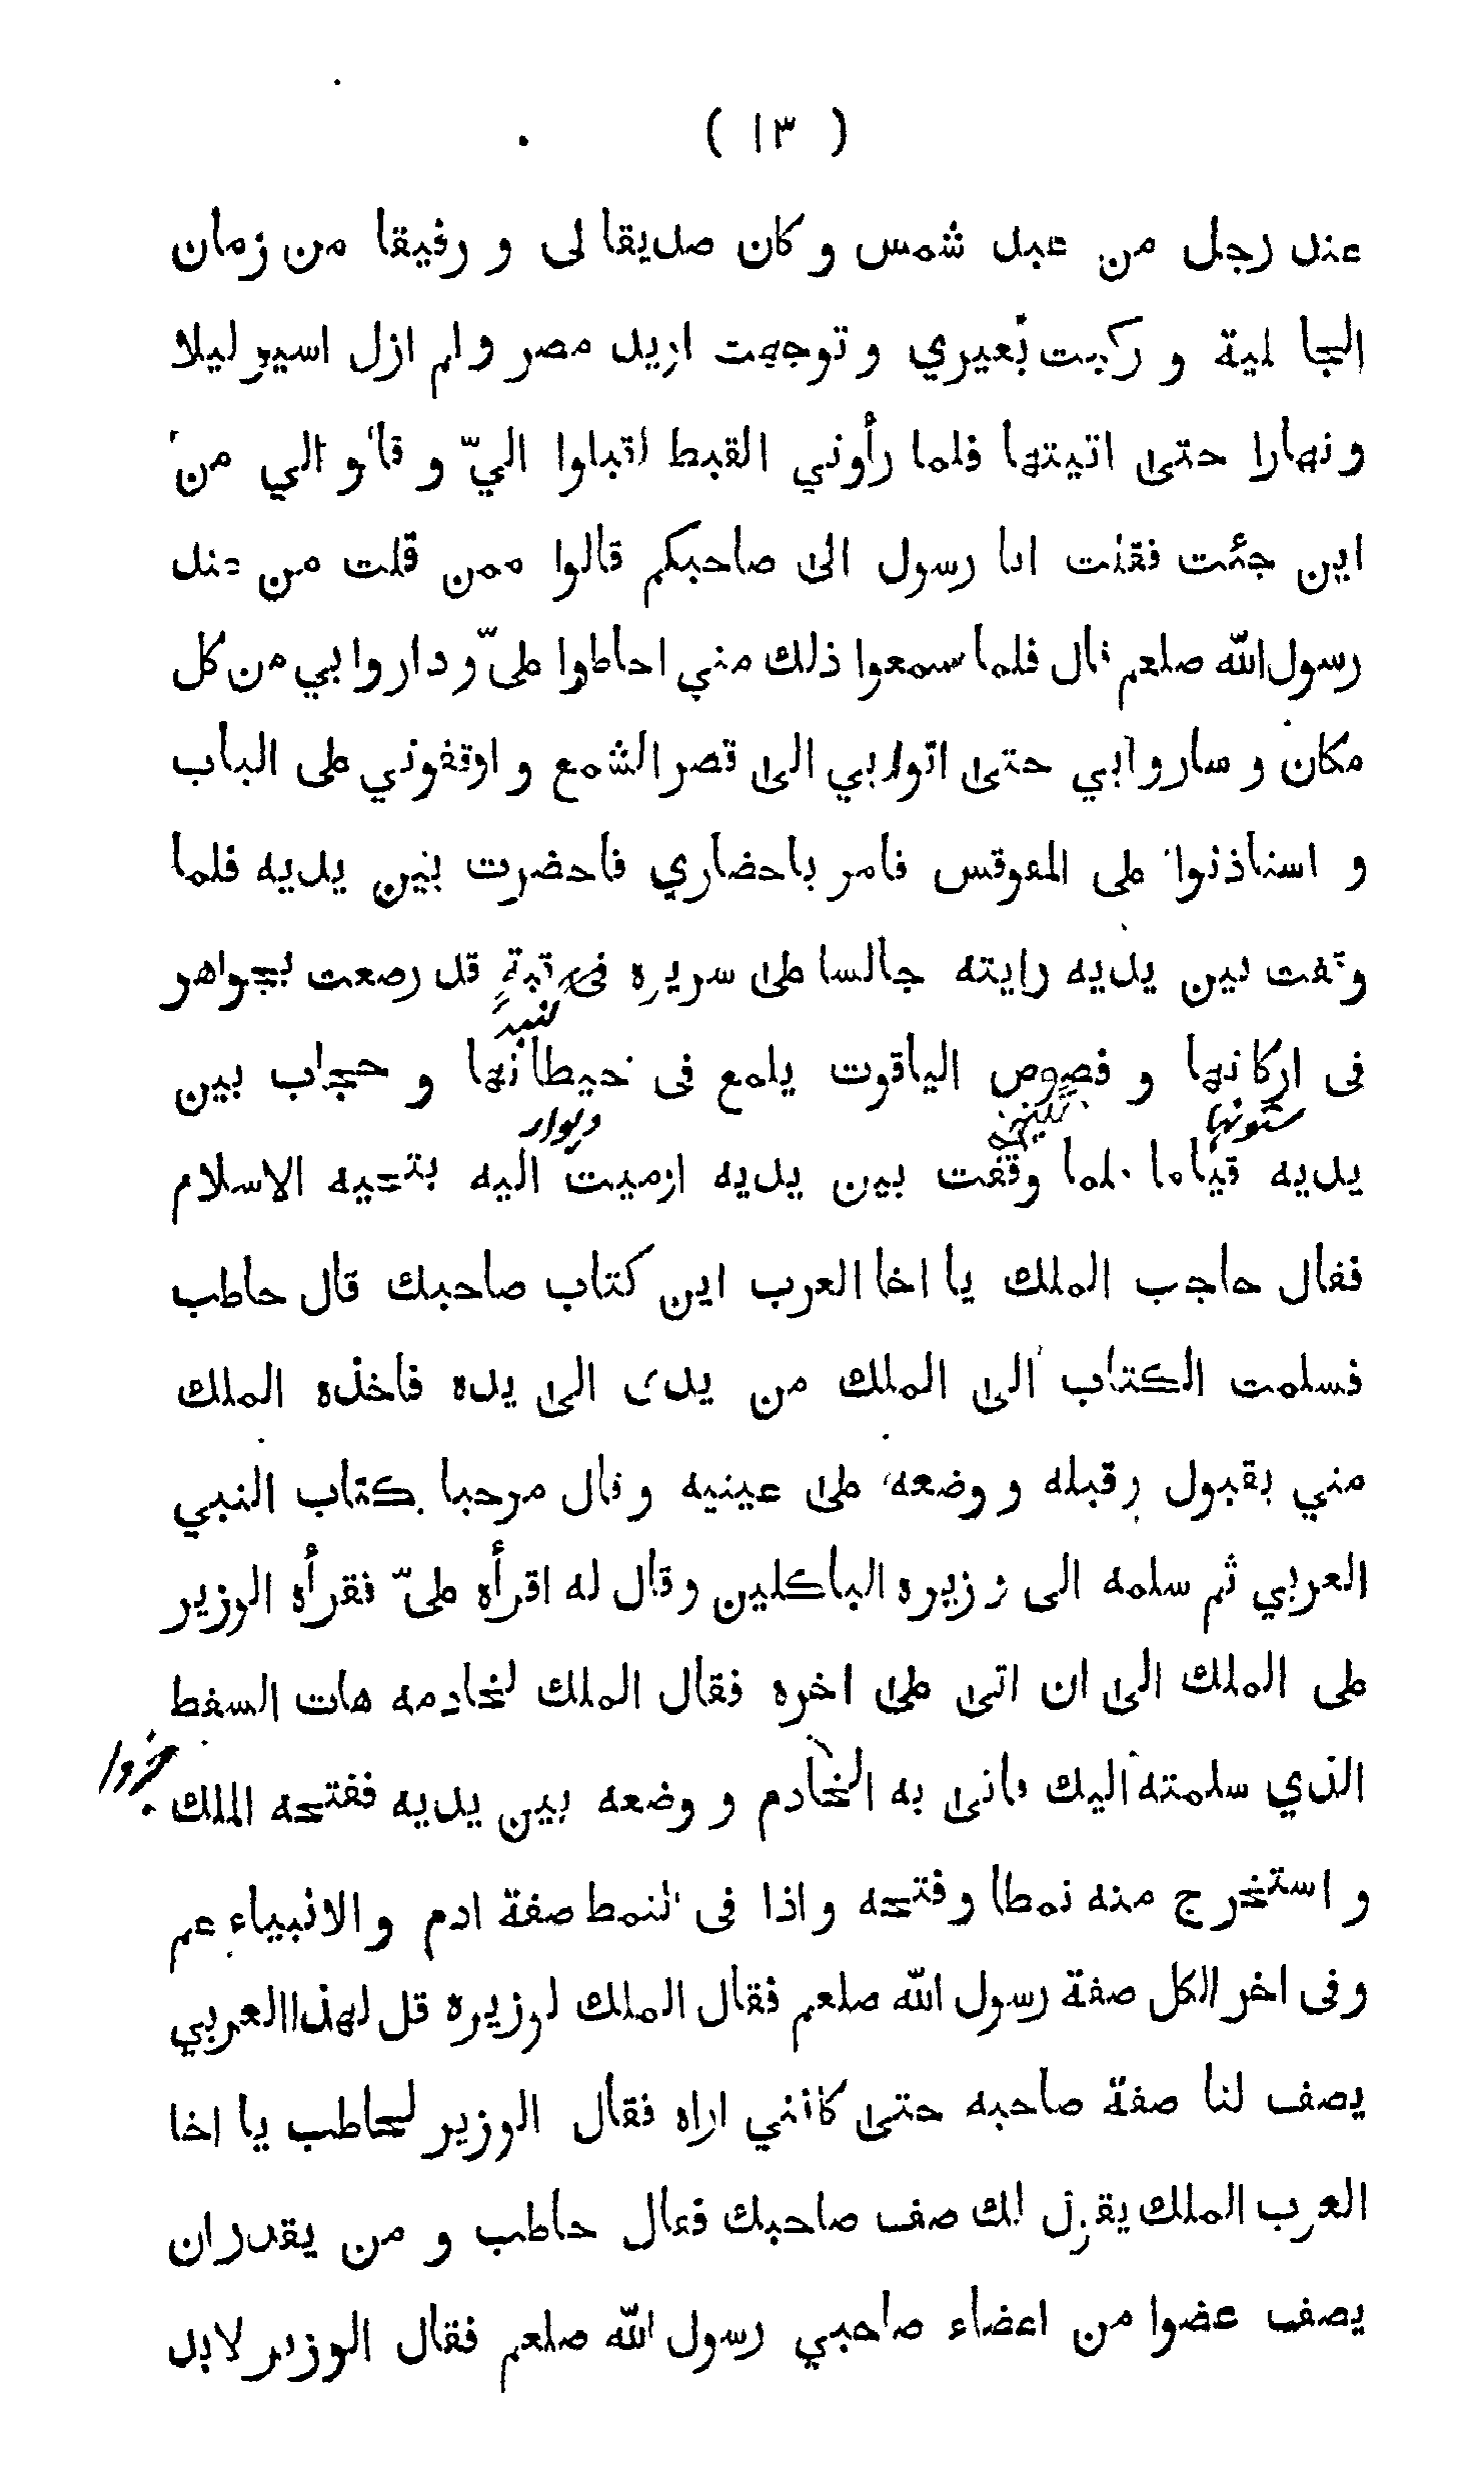 ( ١٣ )
عند رجل من عبد شمس و كان صديقا لى و رفيقا من زمان
الجاهلية و ركبت بعيري و توجهت اريد مصر و لم ازل اسير ليلا
و نهارا حتى اتيتها فلما رأوني القبط اقبلوا اليّ و قالوا لي من
اين جئت فقلت انا رسول الى صاحبكم قالوا ممن قلت من عند
رسول الله صلعم قال فلما سمعوا ذلك مني احاطوا علىّ و داروا بي من كل
مكان و ساروا بي حتى اتوا بي الى قصر الشمع و اوقفوني على الباب
و استاذنوا على المقوقس فامر باحضاري فاحضرت بين يديه فلما
وقفت بين يديه رايته جالسا على سريره فى قبة قد رصعت بجواهر
گنبد
فى اركانها و فصوص الياقوت يلمع فى حيطانها و حجاب بين
ستونها نگينها ديوار
يديه قياما فلما وقفت بين يديه ازميت اليه بتحيه الاسلام
فقال حاجب الملك يا اخا العرب اين كتاب صاحبك قال حاطب
فسلمت الكتاب الى الملك من يدى الى يده فاخذه الملك
مني بقبول و قبله و وضعه على عينيه و قال مرحبا بكتاب النبي
العربي ثم سلمه الى وزيره الباكلين و قال له اقرأه علىّ فقرأه الوزير
على الملك الى ان اتى على اخره فقال الملك لخادمه هات السفط
الذي سلمته اليك فاتى به الخادم و وضعه بين يديه ففتحه الملك
و استخرج منه نمطا و فتحه و اذا فى النمط صفة ادم و الانبياء عم
و فى اخر الكل صفة رسول الله صلعم فقال الملك لوزيره قل لهذا العربي
يصف لنا صفة صاحبه حتى كانني اراه فقال الوزير لحاطب يا اخا
العرب الملك يقول لك صف صاحبك فقال حاطب و من يقدر ان
يصف عضوا من اعضاء صاحبي رسول الله صلعم فقال الوزير لابد